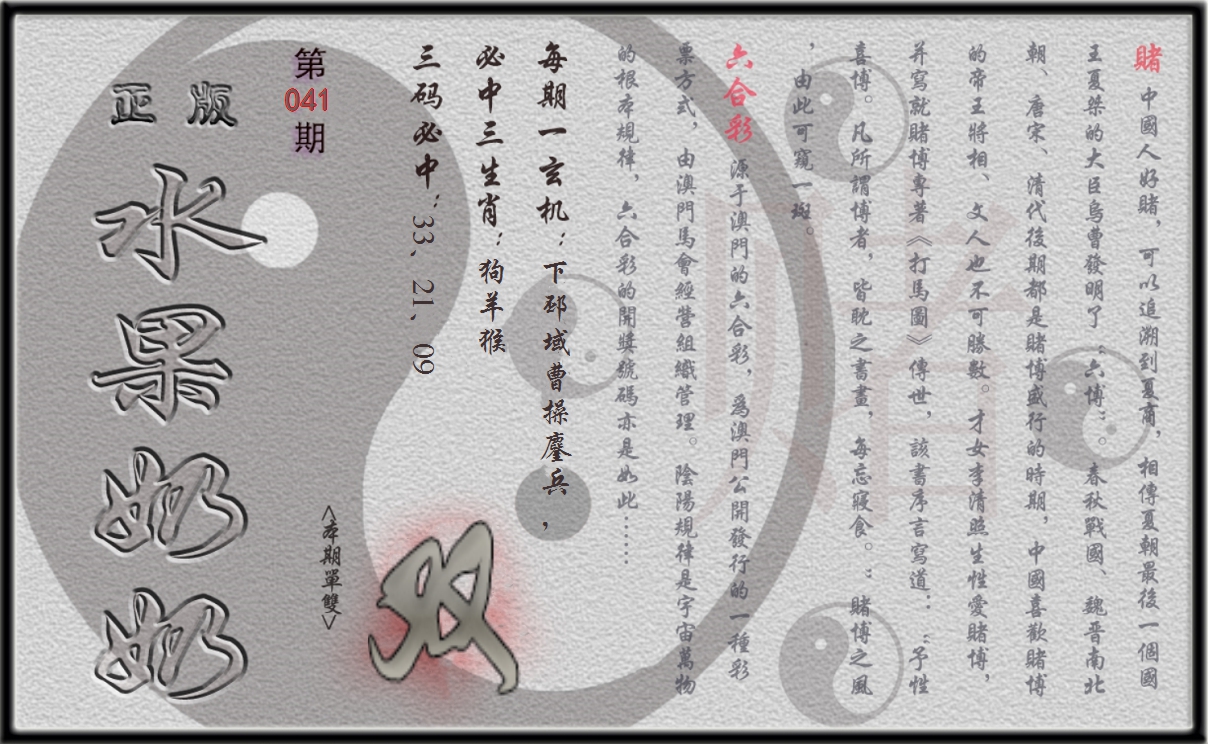 賭 中國人好賭，可以追溯到夏商，相傳夏朝最後一個國
王夏桀的大臣烏曹發明了“六博”。春秋戰國、魏晉南北
朝、唐宋、清代後期都是賭博盛行的時期，中國喜歡賭博
的帝王將相、文人也不可勝數。才女李清照生性愛賭博，
并寫就賭博專著《打馬圖》傳世，該書序言寫道：“予性
喜博。凡所謂博者，皆耽之書畫，每忘寢食。：賭博之風
，由此可窺一斑。
六合彩 源于澳門的六合彩，爲澳門公開發行的一種彩
票方式，由澳門馬會經營組織管理。陰陽規律是宇宙萬物
的根本規律，六合彩的開獎號碼亦是如此……
每期一玄机：下邳域曹操鏖兵，
必中三生肖：狗羊猴
三码必中：33、21、09
<本期單雙>
双
第
041
期
正版
水果奶奶
赌